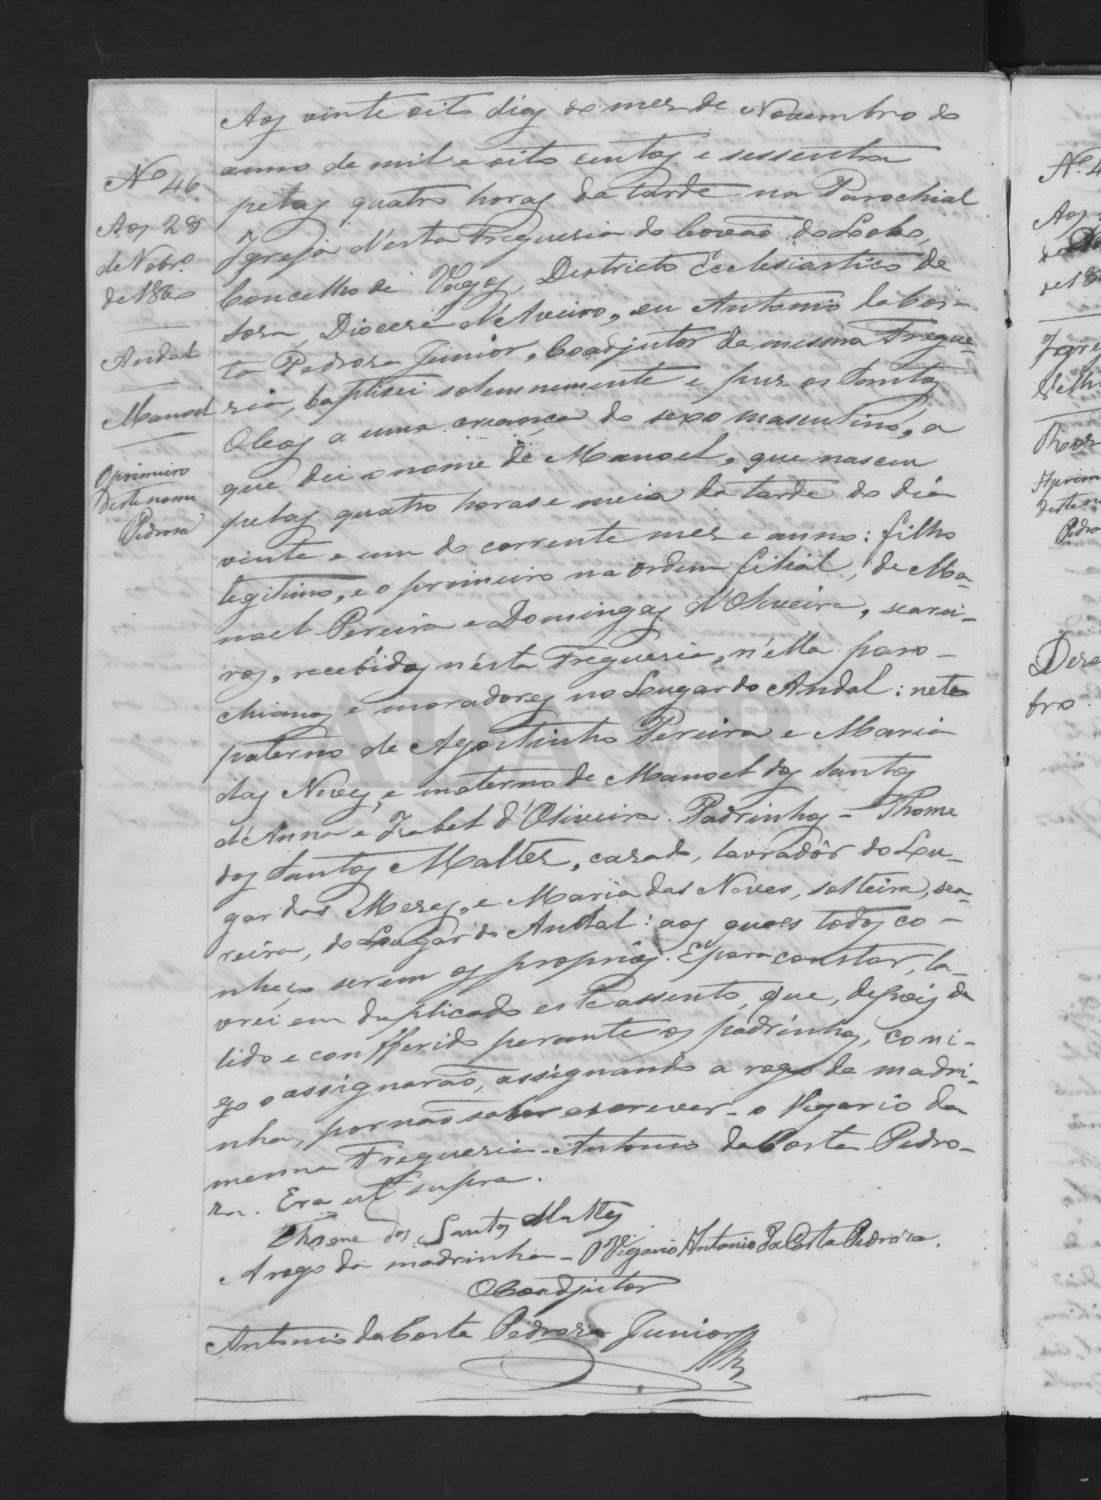 Nº 46
Aos 28
de Nobr.º
de 1860
Andal
Manoel
O primeiro
deste nome
Pedrosa
Aos vinte oito dias do mez de Novembro do
anno de mil e oito centos e sessenta
pelas quatro horas da tarde na Parochial
Igreja d'esta Freguesia do Covão do Lobo,
Concelho de Vagos, Districto Ecclesiastico de
Sora, Diocese d'Aveiro, eu Antonio da Cos-
ta Pedrosa Junior, Coadjutor da mesma Fregue-
sia, baptisei solemnemente e puz os Santos
Oleos a uma creança do sexo masculino, a
que dei o nome de Manoel, que nasceu
pelas quatro horas e meia da tarde do dia
vinte e um do corrente mez e anno: filho
legitimo, e o primeiro na ordem filial, de Ma-
noel Pereira e Domingas d'Oliveira, seareì-
ros, recebidos n'esta Freguesia, n'ella paro-
chianos e moradores no Lugar do Andal: neto
paterno de Agostinho Pereira e Maria
das Neves, e materno de Manoel dos Santos
d'Anna e Izabel d'Oliveira. Padrinhos - Thome
dos Santos Malta, casado, lavradôr do Lu-
gar das Mesas, e Maria das Neves, solteira, sea-
reira, do Lugar do Andal: aos quaes todos co-
nheço serem os proprios. E para constar, la-
vrei em duplicado este assento, que, depois de
lido e conferido perante os padrinhos, comi-
go o assignarão, assignando a rogo da madri-
nha, por não saber escrever - o Vigario da
mesma Freguesia - Antonio da Costa Pedro-
za. Era ut supra.
Thome dos Santos Malta
A rogo da madrinha - O Vigario Antonio da Costa Pedroza.
O Coadjutor
Antonio da Costa Pedroza Junior
ADAVR